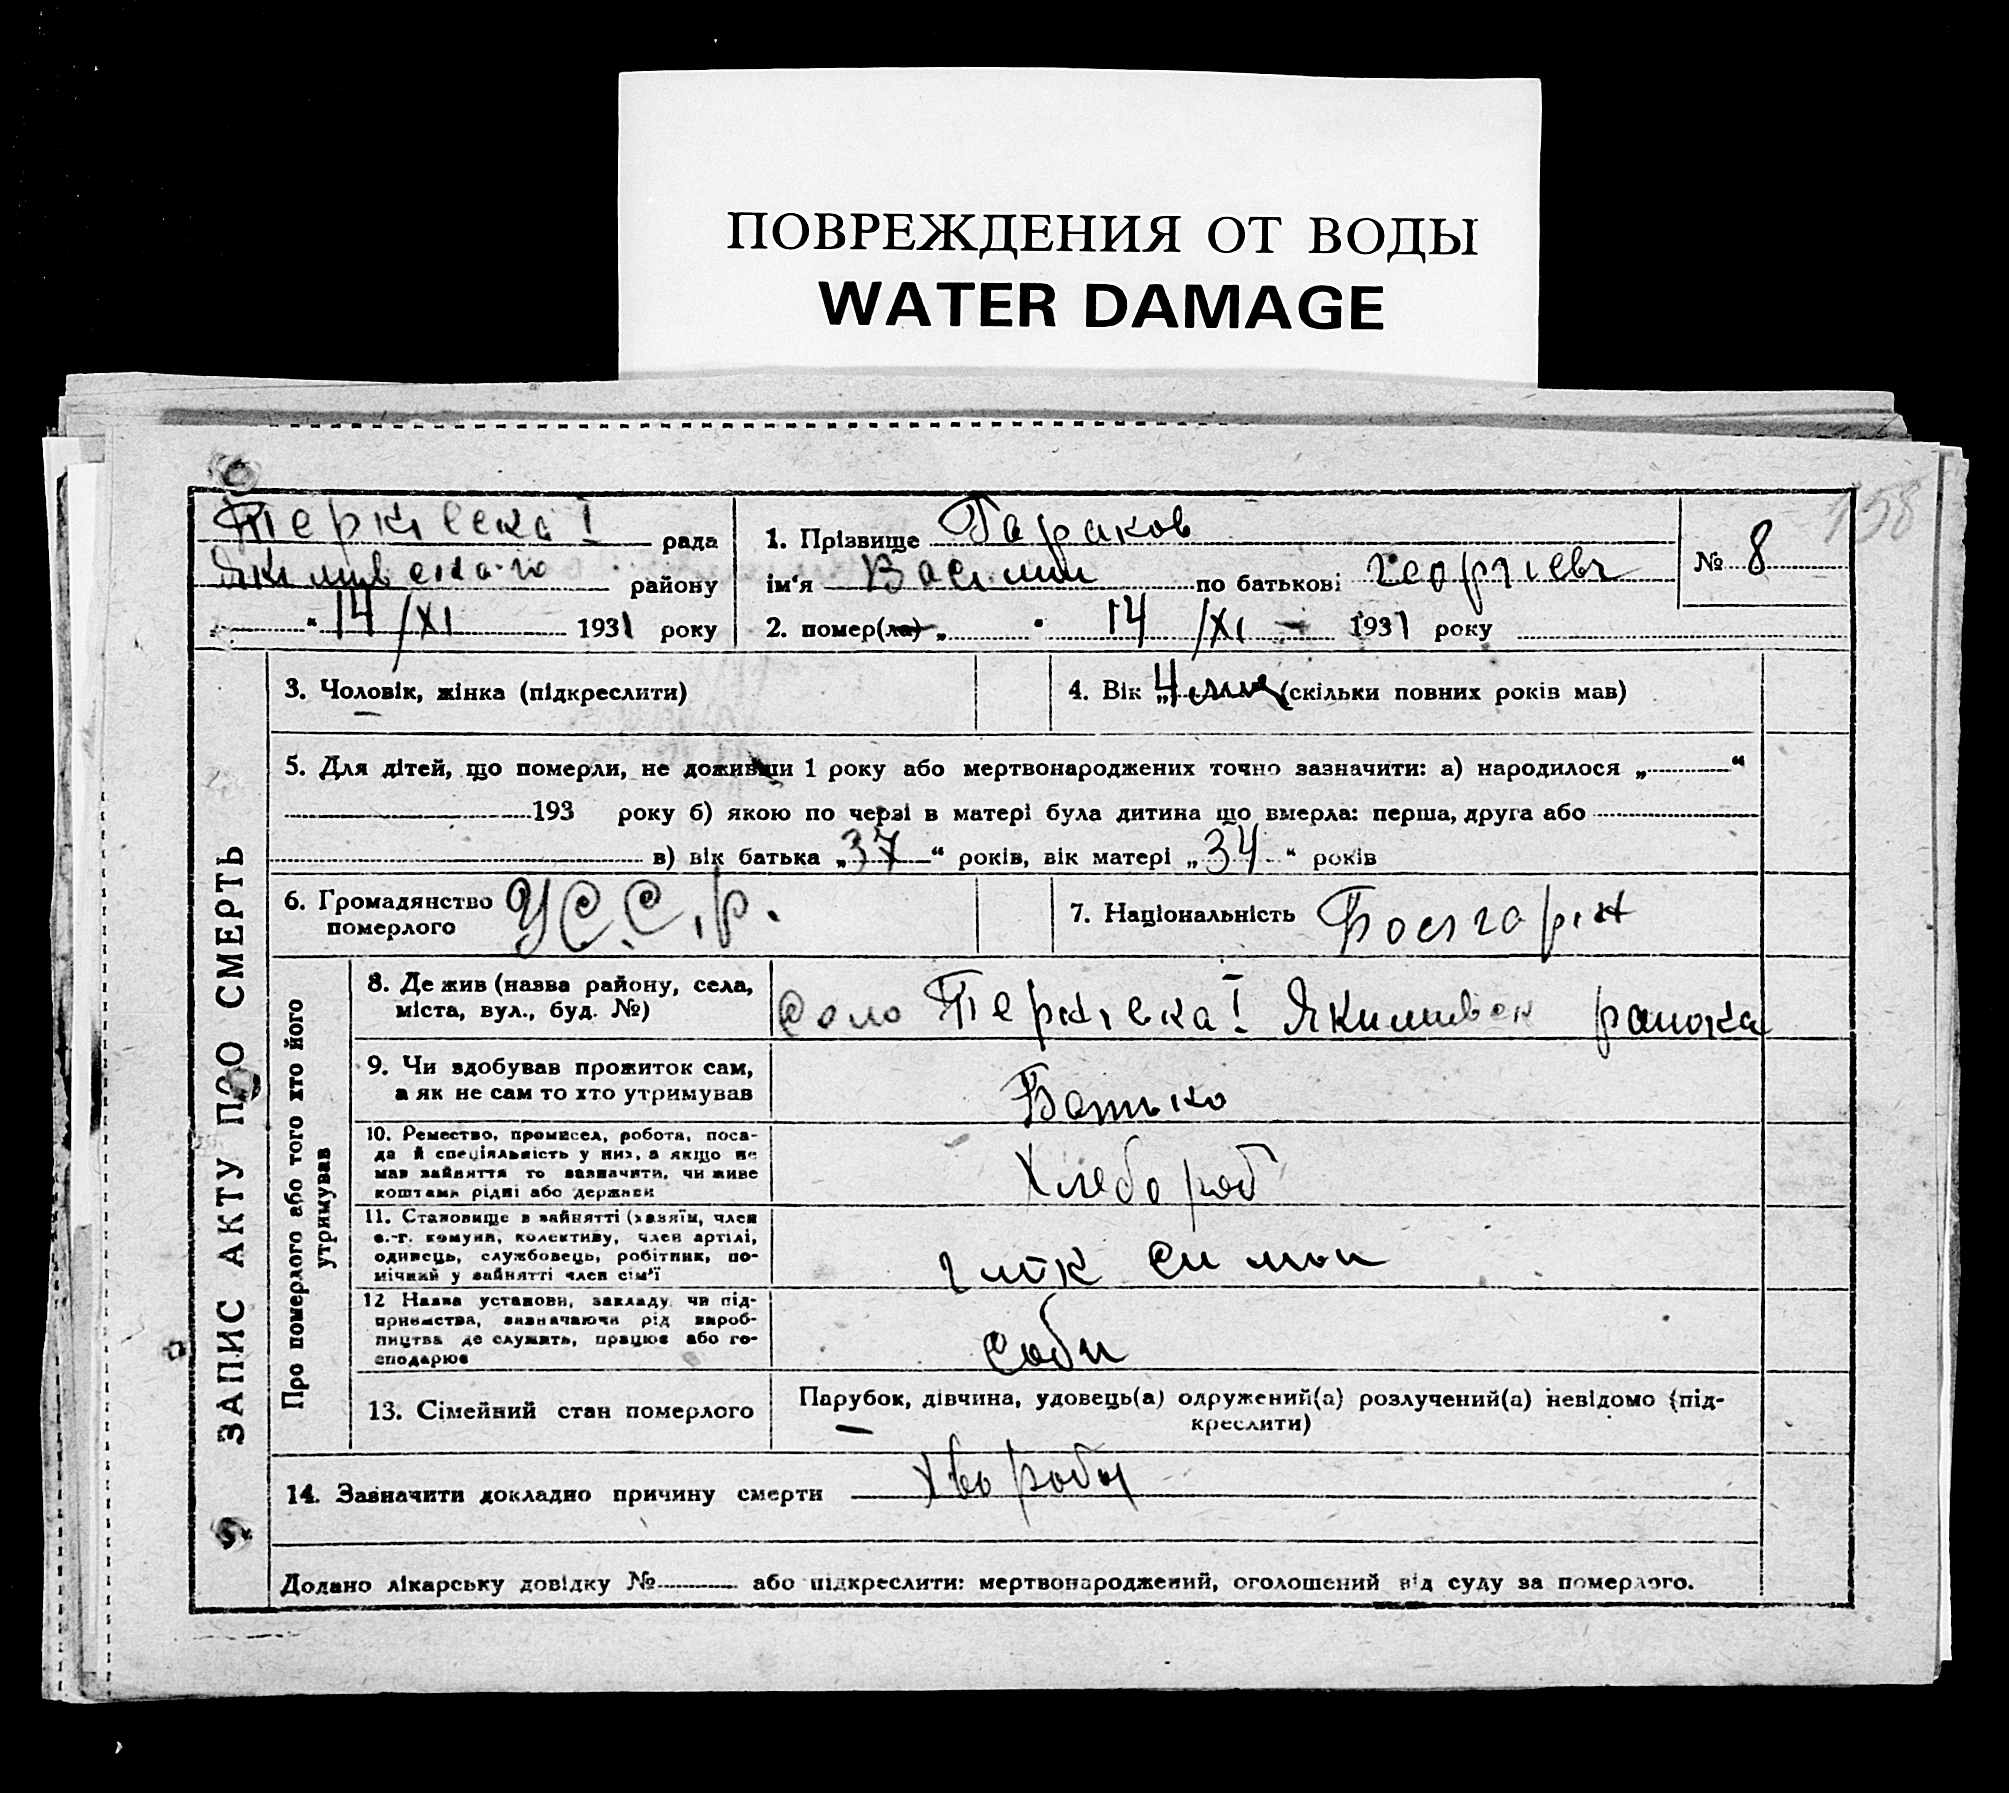 ПОВРЕЖДЕНИЯ ОТ ВОДЫ
WATER DAMAGE
158
ЗАПИС АКТУ ПРО СМЕРТЬ
рада
району
14/XI 1931 року
1. Прізвище
ім'я Василий по батькові Георгиевч
2. помер(ла) „ “ 14/XI 1931 року
№ 8
3. Чоловік, жінка (підкреслити)
4. Вік „4 (скільки повних років мав)
5. Для дітей, що померли, не доживши 1 року або мертвонароджених точно зазначити: а) народилося „ “
193 року б) якою по черзі в матері була дитина що вмерла: перша, друга або
в) вік батька „37“ років, вік матері „34“ років
6. Громадянство померлого У.С.С.р.
7. Національність Болгарин
Про померлого або того хто його утримував
8. Де жив (назва району, села,
міста, вул., буд. №)
9. Чи здобував прожиток сам,
а як не сам то хто утримував
Батько
10. Ремество, промисел, робота, поса-
да й спеціяльність у них, а якщо не
мав зайняття то зазначити, чи живе
коштами рідні або держави
Хлебороб
11. Становище в зайнятті (хазяїн, член
с.-г. комуни, колективу, член артілі,
одинець, службовець, робітник, по-
мічний у зайнятті член сім'ї
12 Назва установи, закладу чи під-
приємства, зазначаючи рід вироб-
ництва де служить, працює або го-
сподарює
13. Сімейний стан померлого
Парубок, дівчина, удовець(а) одружений(а) розлучений(а) невідомо (під-
креслити)
14. Зазначити докладно причину смерти хвороби
Додано лікарську довідку № або підкреслити: мертвонароджений, оголошений від суду за померлого.